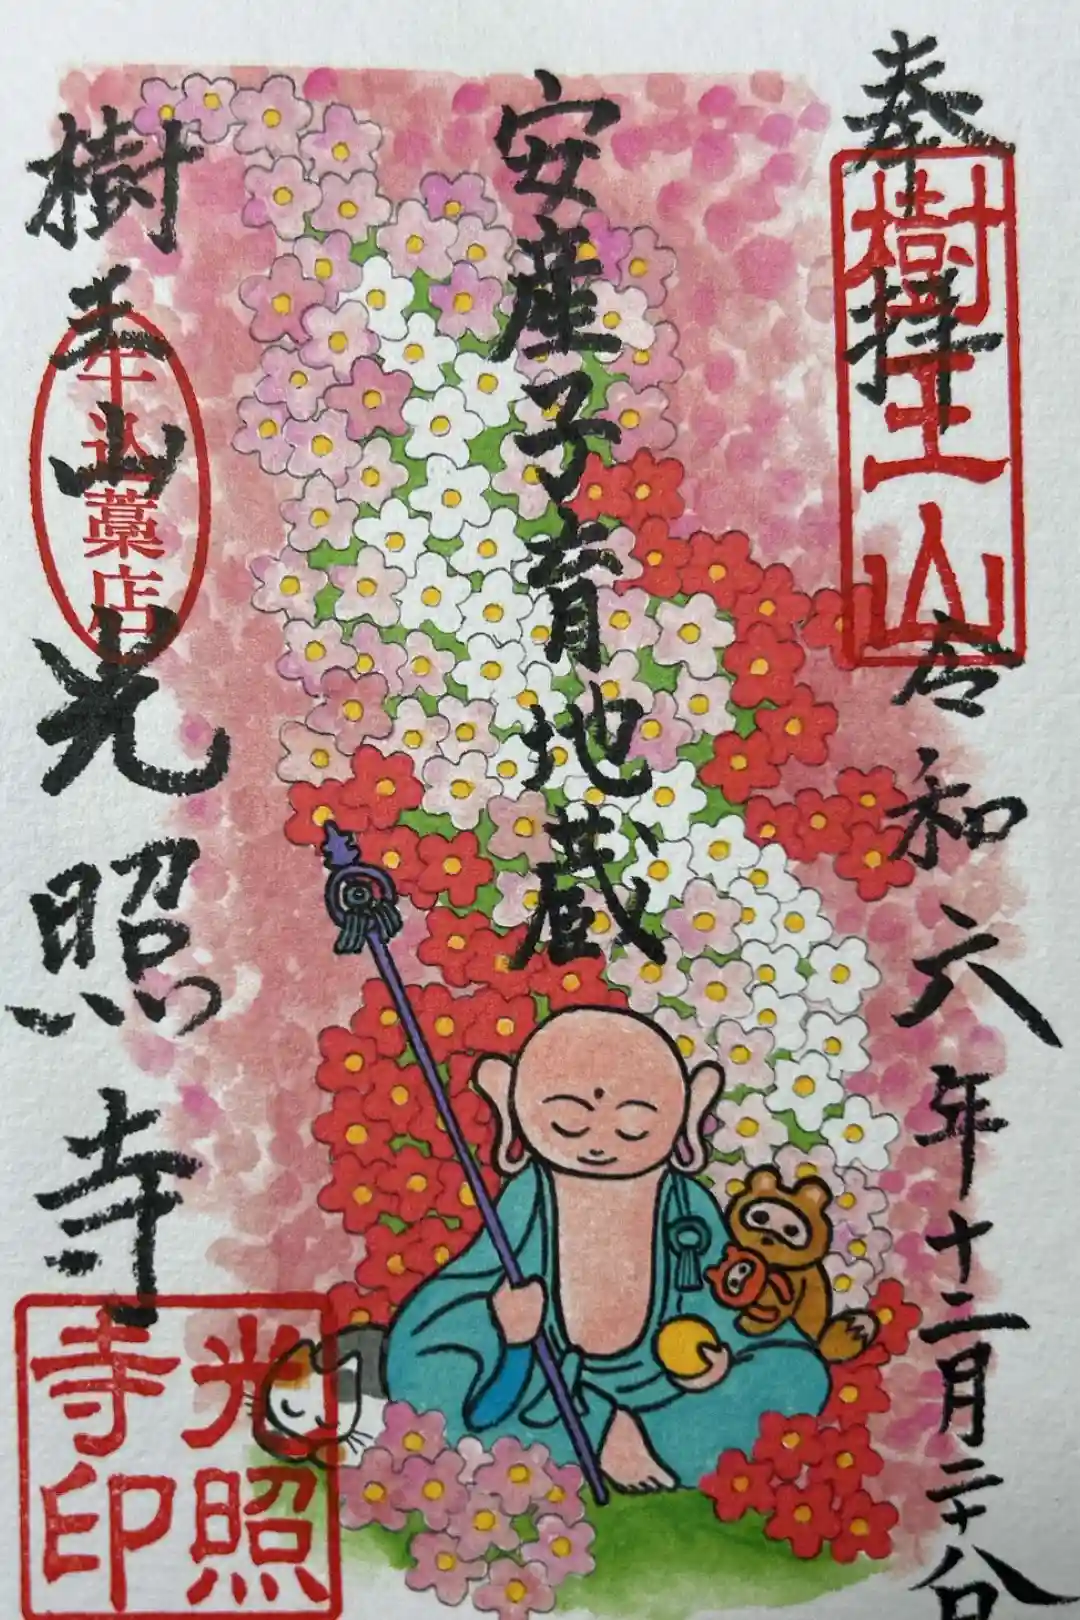 奉拝
樹王山
令和六年十二月二十八日
安産子育地蔵
樹王山光照寺
牛込藁店
光照
寺印